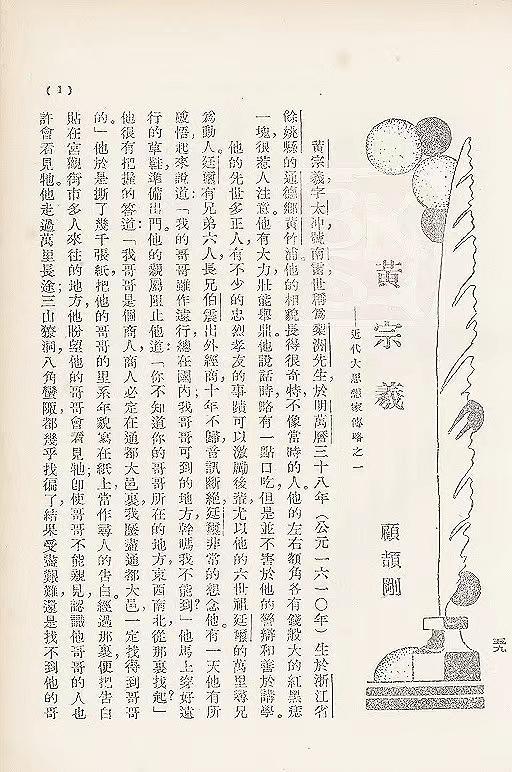 黃宗羲
——近代大思想家傳略之一
顧頡剛
黃宗羲字太沖號南雷世稱爲棃洲先生於明萬曆三十八年（公元一六一〇年）生於浙江省
餘姚縣的通德鄉黃竹浦他的相貌長得很奇特不像當時的人他的左右額角各有錢般大的紅黑痣
一塊很惹人注意。他有大力壯能舉鼎他說話時略有一點口吃但是並不害於他的警辯和善於講學。
他的先世多正人有不少的忠烈孝友的事蹟可以激勵後輩尤以他的六世祖廷璽的萬里尋兄
爲動人。廷璽有兄弟六人長兄伯震出外經商十年不歸音訊斷絕廷璽非常的想念他。有一天他有所
感悟起來說道：「我的哥哥雖作遠行總在國內；我哥哥可到的地方幹嗎我不能到？」他馬上穿好遠
行的草鞋準備出門。他的親屬阻止他道：「你不知道你的哥哥所在的地方東西南北從那裏找起？」
他很有把握的答道：「我哥哥是個商人商人必定在通都大邑裏我歷盡通都大邑一定找得到哥哥
的。」他於是撕了幾千張紙把他的哥哥的里系年貌寫在紙上當作尋人的告白經過那裏便把告白
貼在宮觀街市多人來往的地方他盼望他的哥哥會看見牠；卽使哥哥不能親見認識他哥哥的人也
許會看見牠。他走過萬里長途三山獠洞八角蠻陬都幾乎找徧了結果受盡艱難還是找不到他的哥
(1)
五九